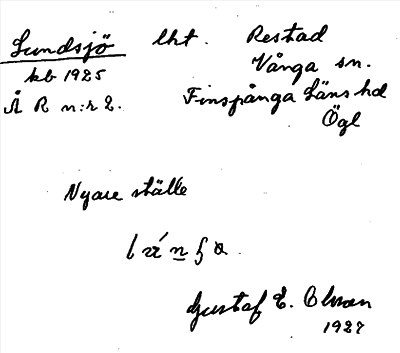 Lundsjö lht. Restad
kb 1925 Vånga sn.
Å R n:r 2. Finspånga Läns hd
Ögl
Nyare ställe
Gustaf E. Olsson
1927